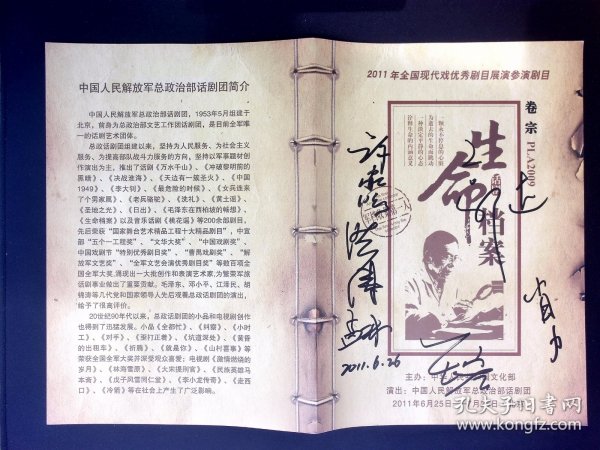 中国人民解放军总政治部话剧团简介
中国人民解放军总政治部话剧团，1953年5月组建于
北京，前身为总政治部文艺工作团话剧团，是目前全军唯
一的话剧艺术团体。
总政话剧团组建以来，坚持为人民服务、为社会主义
服务、为提高部队战斗力服务的方向，坚持以军事题材创
作演出为主，推出了《万水千山》、《冲破黎明前的
黑暗》、《决战淮海》、《天边有一簇圣火》、《中国
1949》、《李大钊》、《最危险的时候》、《女兵连来
了个男家属》、《老兵骆驼》、《洗礼》、《黄土谣》、
《圣地之光》、《日出》、《毛泽东在西柏坡的畅想》、
《生命档案》以及音乐话剧《桃花谣》等200余部剧目，
先后荣获“国家舞台艺术精品工程十大精品剧目”，中宣
部“五个一工程奖”、“文华大奖”、“中国戏剧奖”、
中国戏剧节“特别优秀剧目奖”、“曹禺戏剧奖”、“解
放军文艺奖”、“全军文艺会演优秀剧目奖”等数百项全
国全军大奖，涌现出一大批创作和表演艺术家，为繁荣军旅
话剧事业做出了重要贡献。毛泽东、邓小平、江泽民、胡
锦涛等几代党和国家领导人先后观看总政话剧团的演出，
给予了很高评价。
20世纪90年代以来，总政话剧团的小品和电视剧创作
也得到了迅猛发展。小品《全都忙》、《纠察》、《小时
工》、《对手》、《张打正着》、《坑道深处》、《黄昏
的出租车》、《祈雨》、《就是你》、《山村喜事》等
荣获全国全军大奖并深受观众喜爱；电视剧《激情燃烧的
岁月》、《林海雪原》、《大宋提刑官》、《民族英雄马
本斋》、《戎子风雪同仁堂》、《李小龙传奇》、《走西
口》、《冷箭》等在社会上产生了广泛影响。
2011年全国现代戏优秀剧目展演参演剧目
卷宗 PLA2009
生命
档案
2011.6.26
演出：中国人民解放军总政治部话剧团
2011年6月25日
孔夫子旧书网
kongfz.com